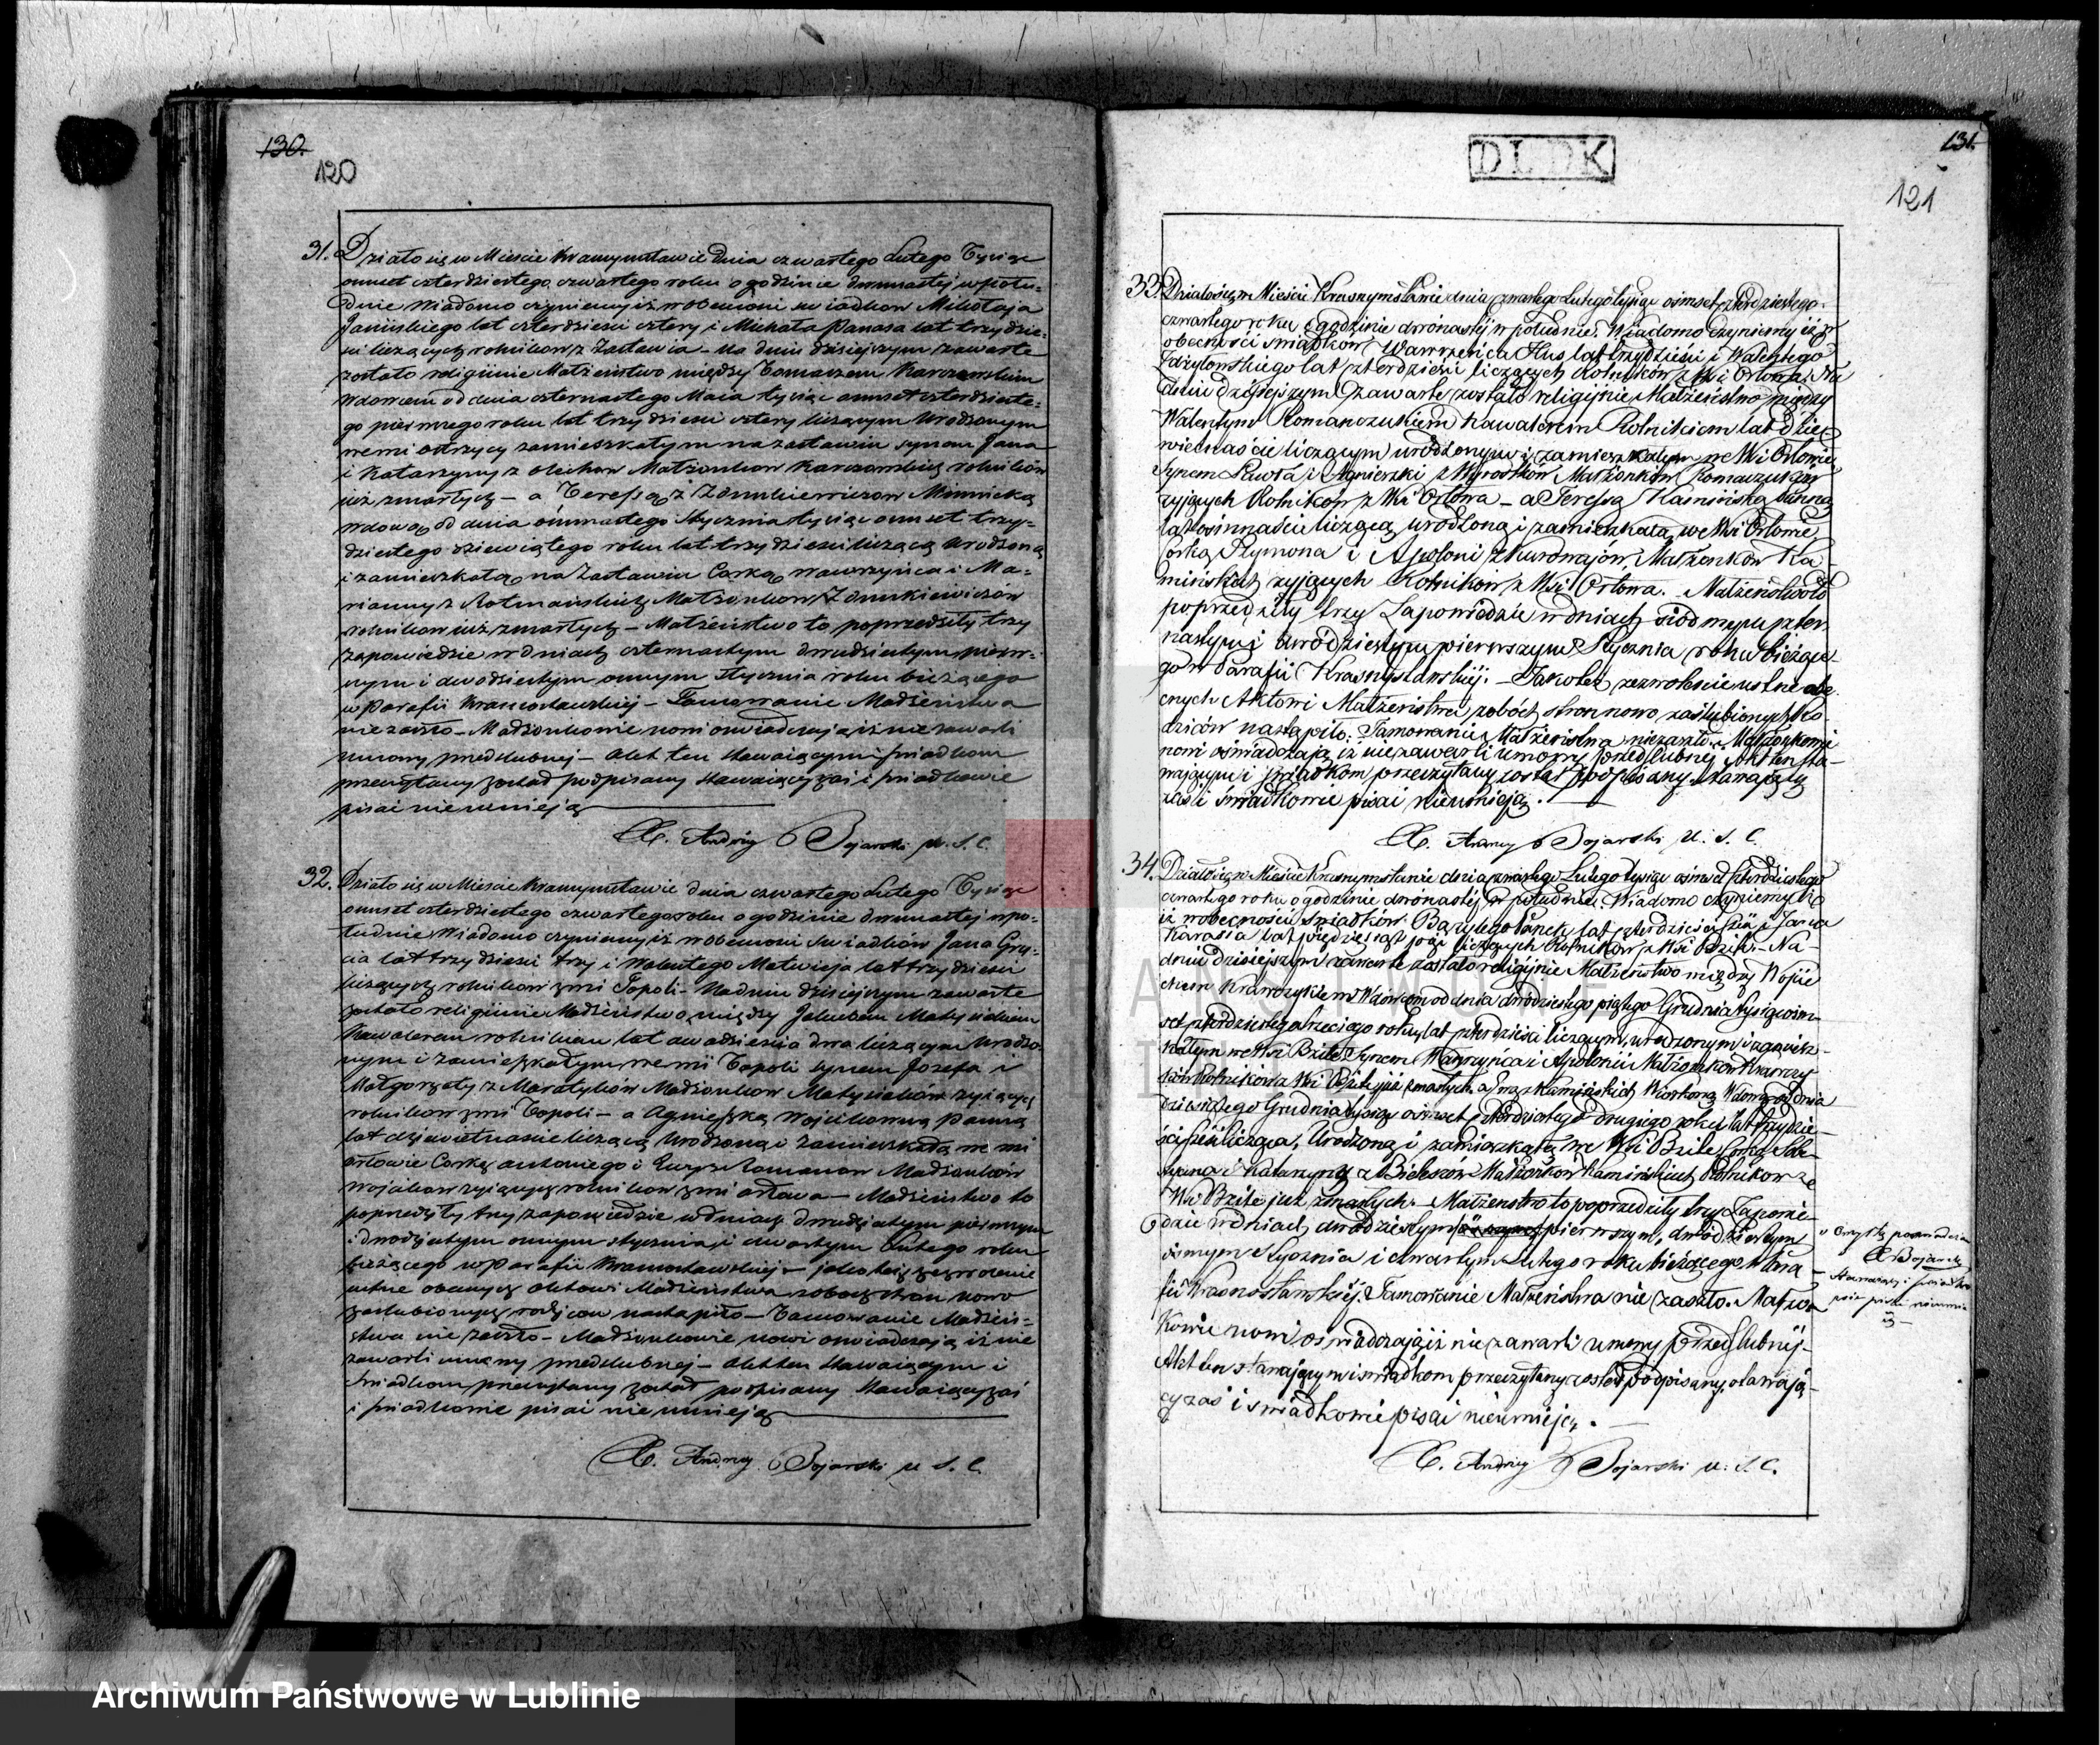 130.
120
31. Działo się w Mieście Krasnymstawie dnia czwartego Lutego Tysiąc
ośmset czterdziestego czwartego roku o godzinie dwunastej w połu-
dnie Wiadomo czyniemy iż w obecności świadków Mikołaja
Janiuskiego lat czterdzieści cztery i Michała Panasa lat trzydzie-
ści liczących rolników z Zastawia – Na dniu dzisiejszym zawarte
zostało religijnie Małżeństwo między Tomaszem Karczewskim
wdowcem od dnia czternastego Maia tysiąc ośmset czterdzieste-
go pierwszego roku lat trzydzieści cztery liczącym urodzonym
we wsi Ostrzycy zamieszkałym na Zastawiu synem Jana
i Katarzyny z Olechów Małżonków Karczewskich rolników
już zmarłych – a Teressą z Zdunkiewiczów Minnicką
wdową od dnia ósmnastego Stycznia tysiąc ośmset trzy-
dziestego dziewiątego roku lat trzydzieści liczącą urodzoną
i zamieszkałą na Zastawiu Córką Wawrzyńca i Ma-
rianny z Rotmańskich Małżonków Zdunkiewiczów
rolników już zmarłych – Małżeństwo to poprzedziły trzy
zapowiedzie w dniach czternastym dwudziestym pierw-
szym i dwudziestym ósmym Stycznia roku bieżącego
w Parafii Krasnostawskiej – Tamowanie Małżeństwa
nie zaszło – Małżonkowie nowi oświadczają iż nie zawarli
umowy przedślubnej – Akt ten stawaiącym i świadkom
przeczytany został podpisany stawaiący zaś i świadkowie
pisać nie umieją
X. Andrzej Bojarski U. S. C.
32. Działo się w Mieście Krasnymstawie dnia czwartego Lutego Tysiąc
ośmset czterdziestego czwartego roku o godzinie dwunastej w po-
łudnie Wiadomo czyniemy iż w obecności świadków Jana Gry-
cia lat trzydzieści trzy i Walentego Matwieja lat trzydzieści
liczących rolników z wsi Topoli – Na dniu dzisiejszym zawarte
zostało religijnie Małżeństwo między Jakubem Matysiakiem
kawalerem rolnikiem lat dwadzieścia dwa liczącym urodzo-
nym i zamieszkałym we wsi Topoli synem Józefa i
Małgorzaty z Maratyków Małżonków Matysiaków żyiących
rolników z wsi Topoli – a Agnieszką Wojcikowną Panną
lat dziewiętnaście liczącą urodzoną i zamieszkałą we wsi
Orłowie Córką Antoniego i Ewy z Romanów Małżonków
Wojcików żyiących rolników z wsi Orłowa – Małżeństwo to
poprzedziły trzy zapowiedzie w dniach dwudziestym pierwszym
i dwudziestym ósmym Stycznia i czwartym Lutego roku
bieżącego w Parafii Krasnostawskiej – jako też zezwolenie
ustne obecnych Aktowi Małżeństwa z obuch stron nowo
zaślubionych rodziców nastąpiło – Tamowanie Małżeń-
stwa nie zaszło – Małżonkowie nowi oświadczają iż nie
zawarli umowy przedślubnej – Akt ten stawaiącym i
świadkom przeczytany został podpisany stawaiący zaś
i świadkowie pisać nie umieją
X. Andrzej Bojarski U. S. C.
DLDK
131.
121
33. Działo się w Mieście Krasnymstawie dnia czwartego Lutego tysiąc ośmset czterdziestego
czwartego roku o godzinie dwónastej w południe. Wiadomo czyniemy iż w
obecności świadków Wawrzeńca Hus lat trzydzieści i Walentego
Zdżyłowskiego lat czterdzieści liczących Rolników z Wsi Orłowa. Na
dniu dzisiejszym zawarte zostało religijnie Małżeństwo między
Walentym Romańczukiem kawalerem Rolnikiem lat dzie-
więtnaście liczącym urodzonym i zamieszkałym we Wsi Orłowie
Synem Pawła i Agnieszki z Wyrostków Małżonków Romańczuków
żyjących Rolników z Wsi Orłowa – a Teressą Kamińską Panną
lat ośmnaście liczącą, urodzoną i zamieszkałą we Wsi Orłowie
Córką Szymona i Apoloni z Kurdmajów, Małżonków Ka-
mińskich żyjących Rolników z Wsi Orłowa. – Małżeństwo to
poprzedziły trzy Zapowiedzie w dniach siódmym czter-
nastym i dwódziestym pierwszym Stycznia roku bieżące-
go w Parafii Krasnystawskiej. – Jako też zezwolenie ustne obe-
cnych Aktowi Małżeństwa z obóch stron nowo zaślubionych Ro-
dziców nastąpiło. Tamowanie Małżeństwa nie zaszło. Małżonkowie
nowi oświadczają iż nie zawarli umowy przedślubnej. Akt ten sta-
wającym i świadkom przeczytany został podpisany. Stawający
zaś i świadkowie pisać nieumieją.
X. Andrzej Bojarski U. S. C.
34. Działo się w Mieście Krasnymstawie dnia czwartego Lutego tysiąc ośmset czterdziestego
czwartego roku o godzinie dwónastej w południe Wiadomo czyniemy
iż w obecności świadków Bazylego Panek lat czterdzieści sześć i Jana
Karassia lat pięćdziesiąt liczących Rolników z Wsi Bzite. Na
dniu dzisiejszym zawarte zostało religijnie Małżeństwo między Wojcie-
chem Krawczykiem Wdowcem od dnia dwódziestego piątego Grudnia tysiąc ośm-
set czterdziestego trzeciego roku, lat czterdzieści liczącym, urodzonym i zamiesz-
kałym we Wsi Bzite Synem Wawrzyńca i Apolonii Małżonków Krawczy-
ków Rolników z Wsi Bzite już zmarłych, a Ewą z Kamińskich Wiorkową Wdową od dnia
dziewiątego Grudnia tysiąc ośmset czterdziestego drugiego roku, lat trzydzie-
ści sześć liczącą, Urodzoną i zamieszkałą we Wsi Bzite Córką Sebe-
styana i Katarzyny z Bielesów Małżonków Kamińskich Rolników ze
Wsi Bzite już zmarłych. – Małżeństwo to poprzedziły trzy Zapowie-
dzie w dniach dwódziestym pierwszym, dwódziestym
ósmym Stycznia i czwartym Lutego roku bieżącego w Para-
fii Krasnostawskiej. Tamowanie Małżeństwa nie zaszło. Małżon-
kowie nowi oświadczają iż nie zawarli umowy przedślubnej.
Akt ten stawającym i świadkom przeczytany został podpisany, stawają-
cy zaś i świadkowie pisać nieumieją.
X. Andrzej Bojarski U. S. C.
omyłkę poświadcza
X Bojarski
Stawający i świadko
wie pisać nieumie
ią
Archiwum Państwowe w Lublinie